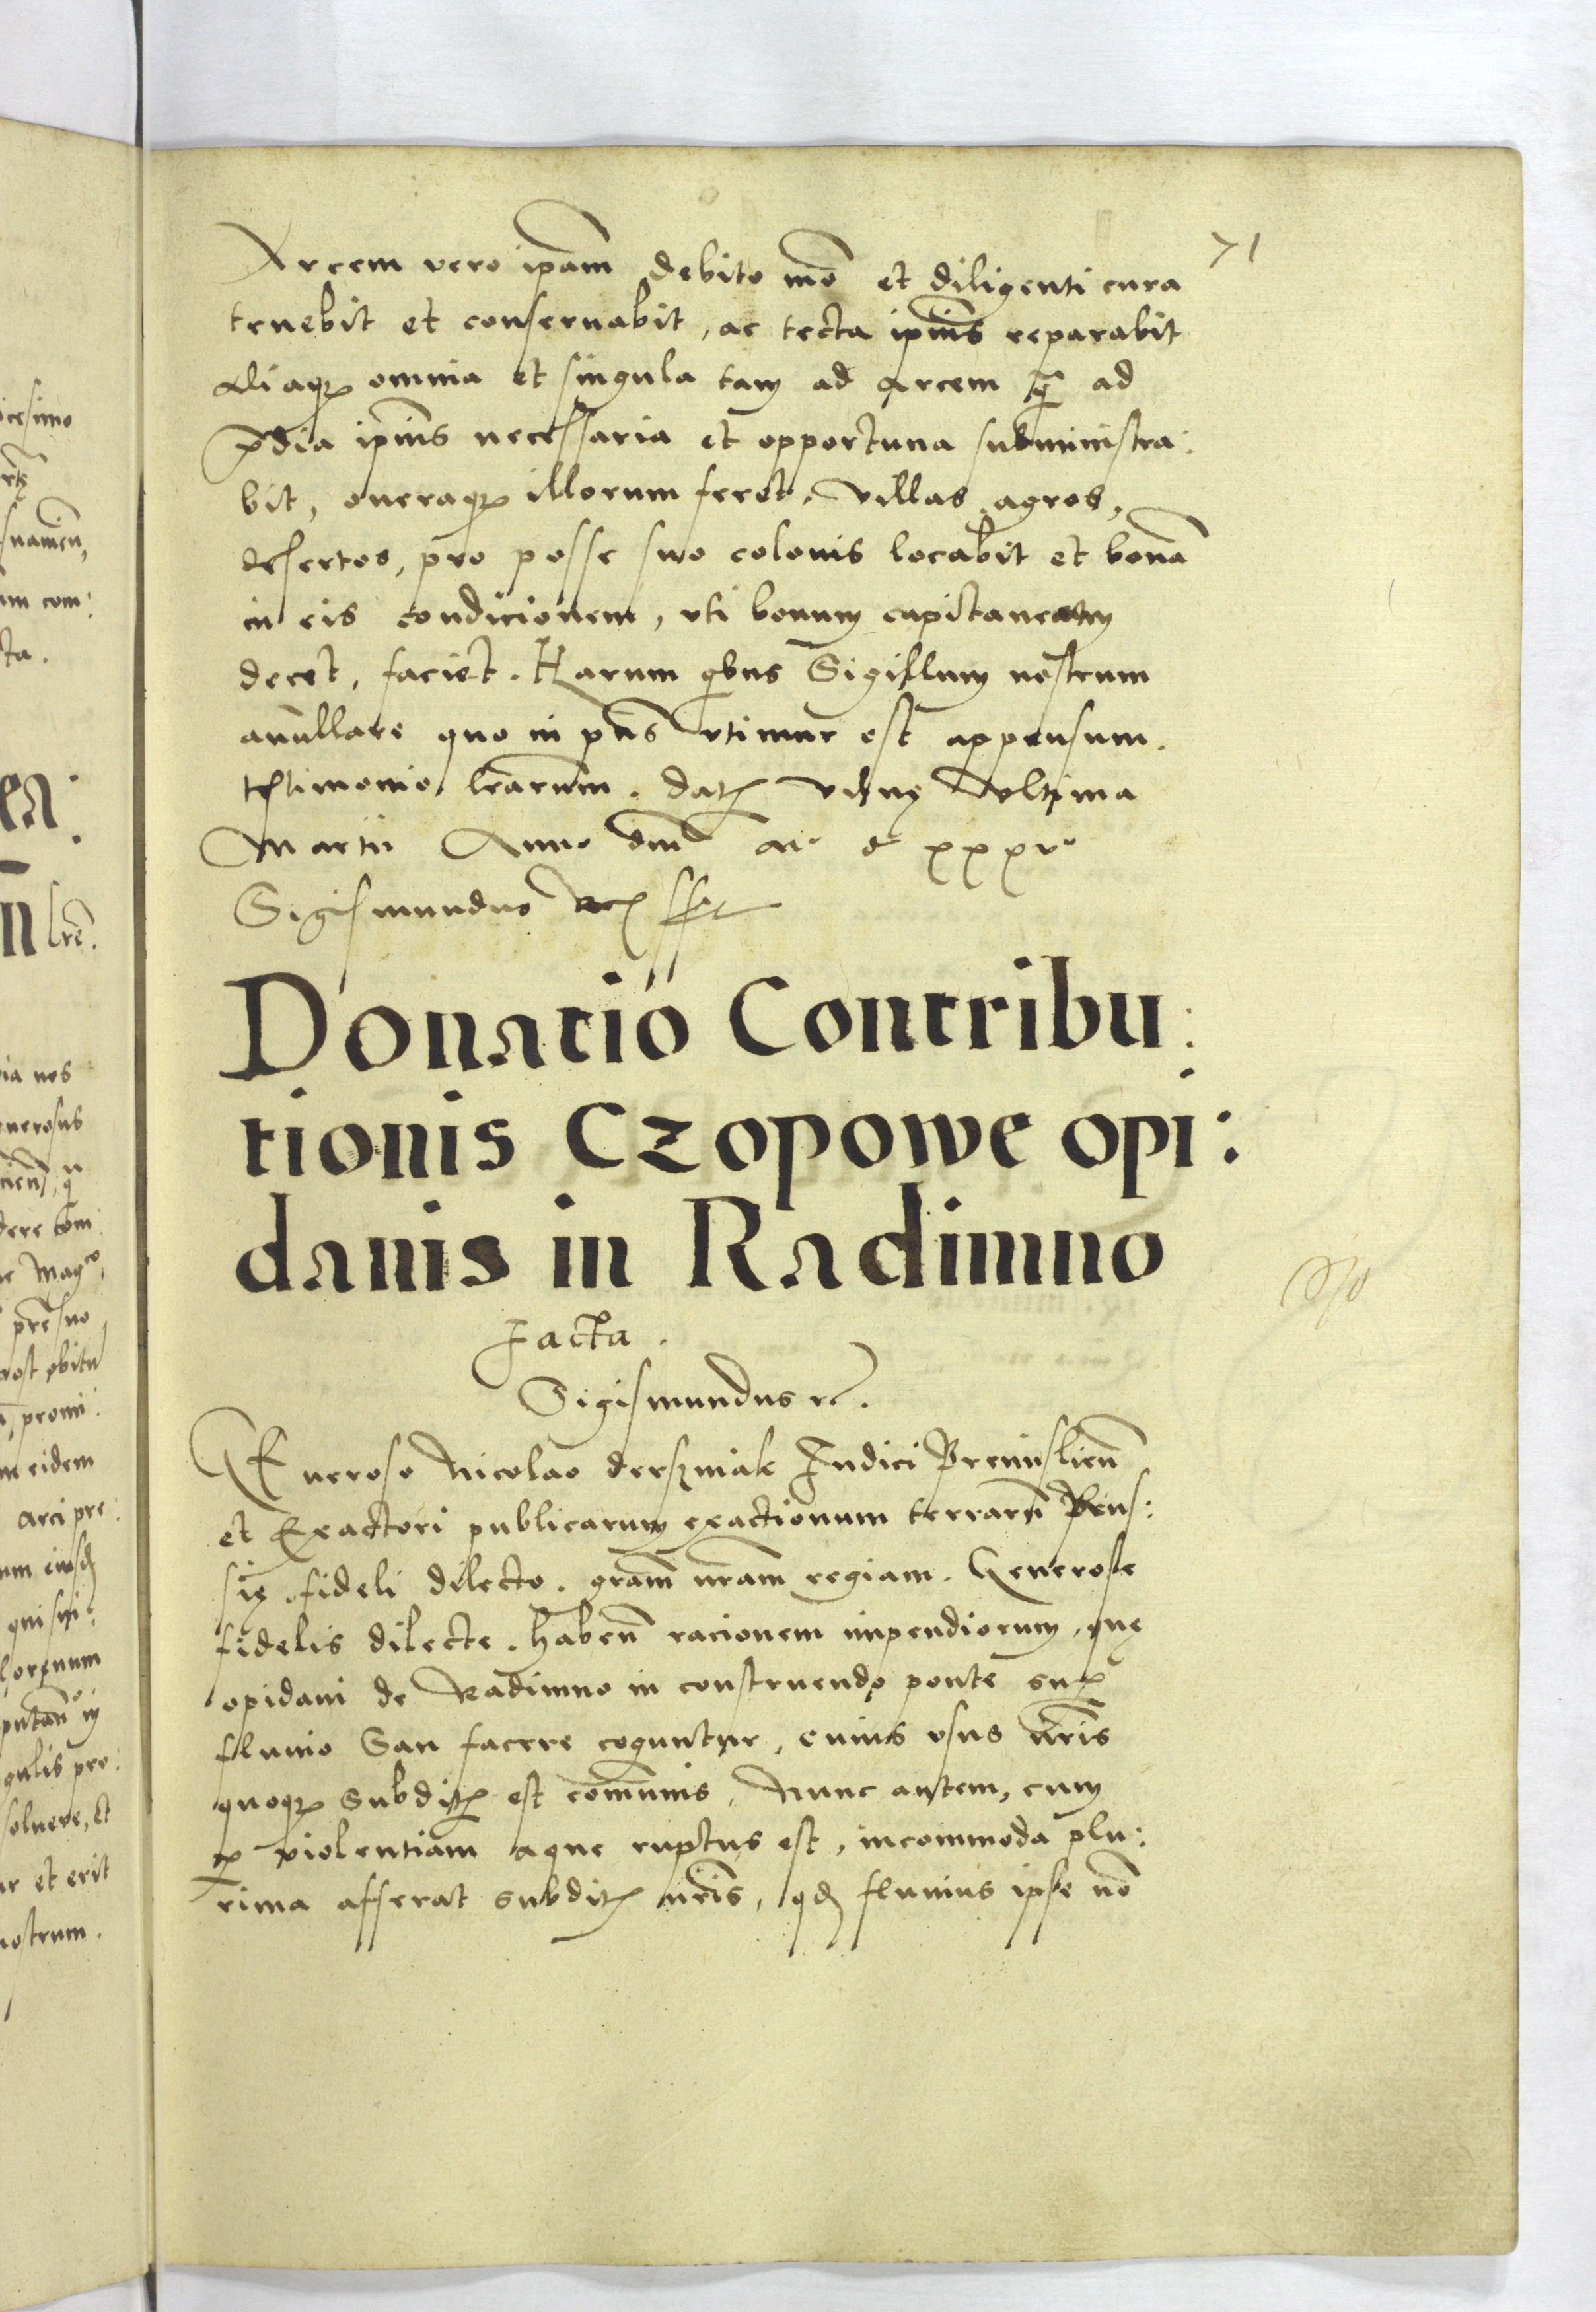 71
Arcem vero ipãm debito mõ et diligenti cura
tenebit et conseruabit, ac tecta ipiũs reparabit
Aliaqꝫ omnia et singula tam ad arcem q̃ ad
p̃dia ipiũs necessaria et opportuna subministra:
bit, oneraqꝫ illorum feret, villas agros,
desertos, pro posse suo colonis locabit et bonã
in eis condicionem, vti bonum capitaneum
decet, faciet. Harum qbus Sigillum nostrum
anullare quo in pñs vtimur est appensum.
testimonio lrãrum. Datꝫ vilnę vltima
Martii Anno dñi Mº d xxxvº
Sigismundus Rex sst
Donatio Contribu:
tionis Czopowe opi:
danis in Radimno
Facta.
Sigismundus rc.
Generoso Nicolao derszniak Iudici Premislieñ
et Exactori publicarum exactionum terrarũ Rus:
się. fideli dilecto. grãm nrãm regiam. Generose
fidelis dilecte. habeñ racionem impendiorum, quę
opidani de Radimno in construendo ponte supꝫ
fluuio San facere coguntur, cuius vsus nris̃
quoqꝫ subditꝫ est com̃unis, Nunc autem, cum
ꝑ violentiam aque ruptus est, incommoda plu:
rima afferat subditꝫ nris̃, qđ fluuius ipse nõ